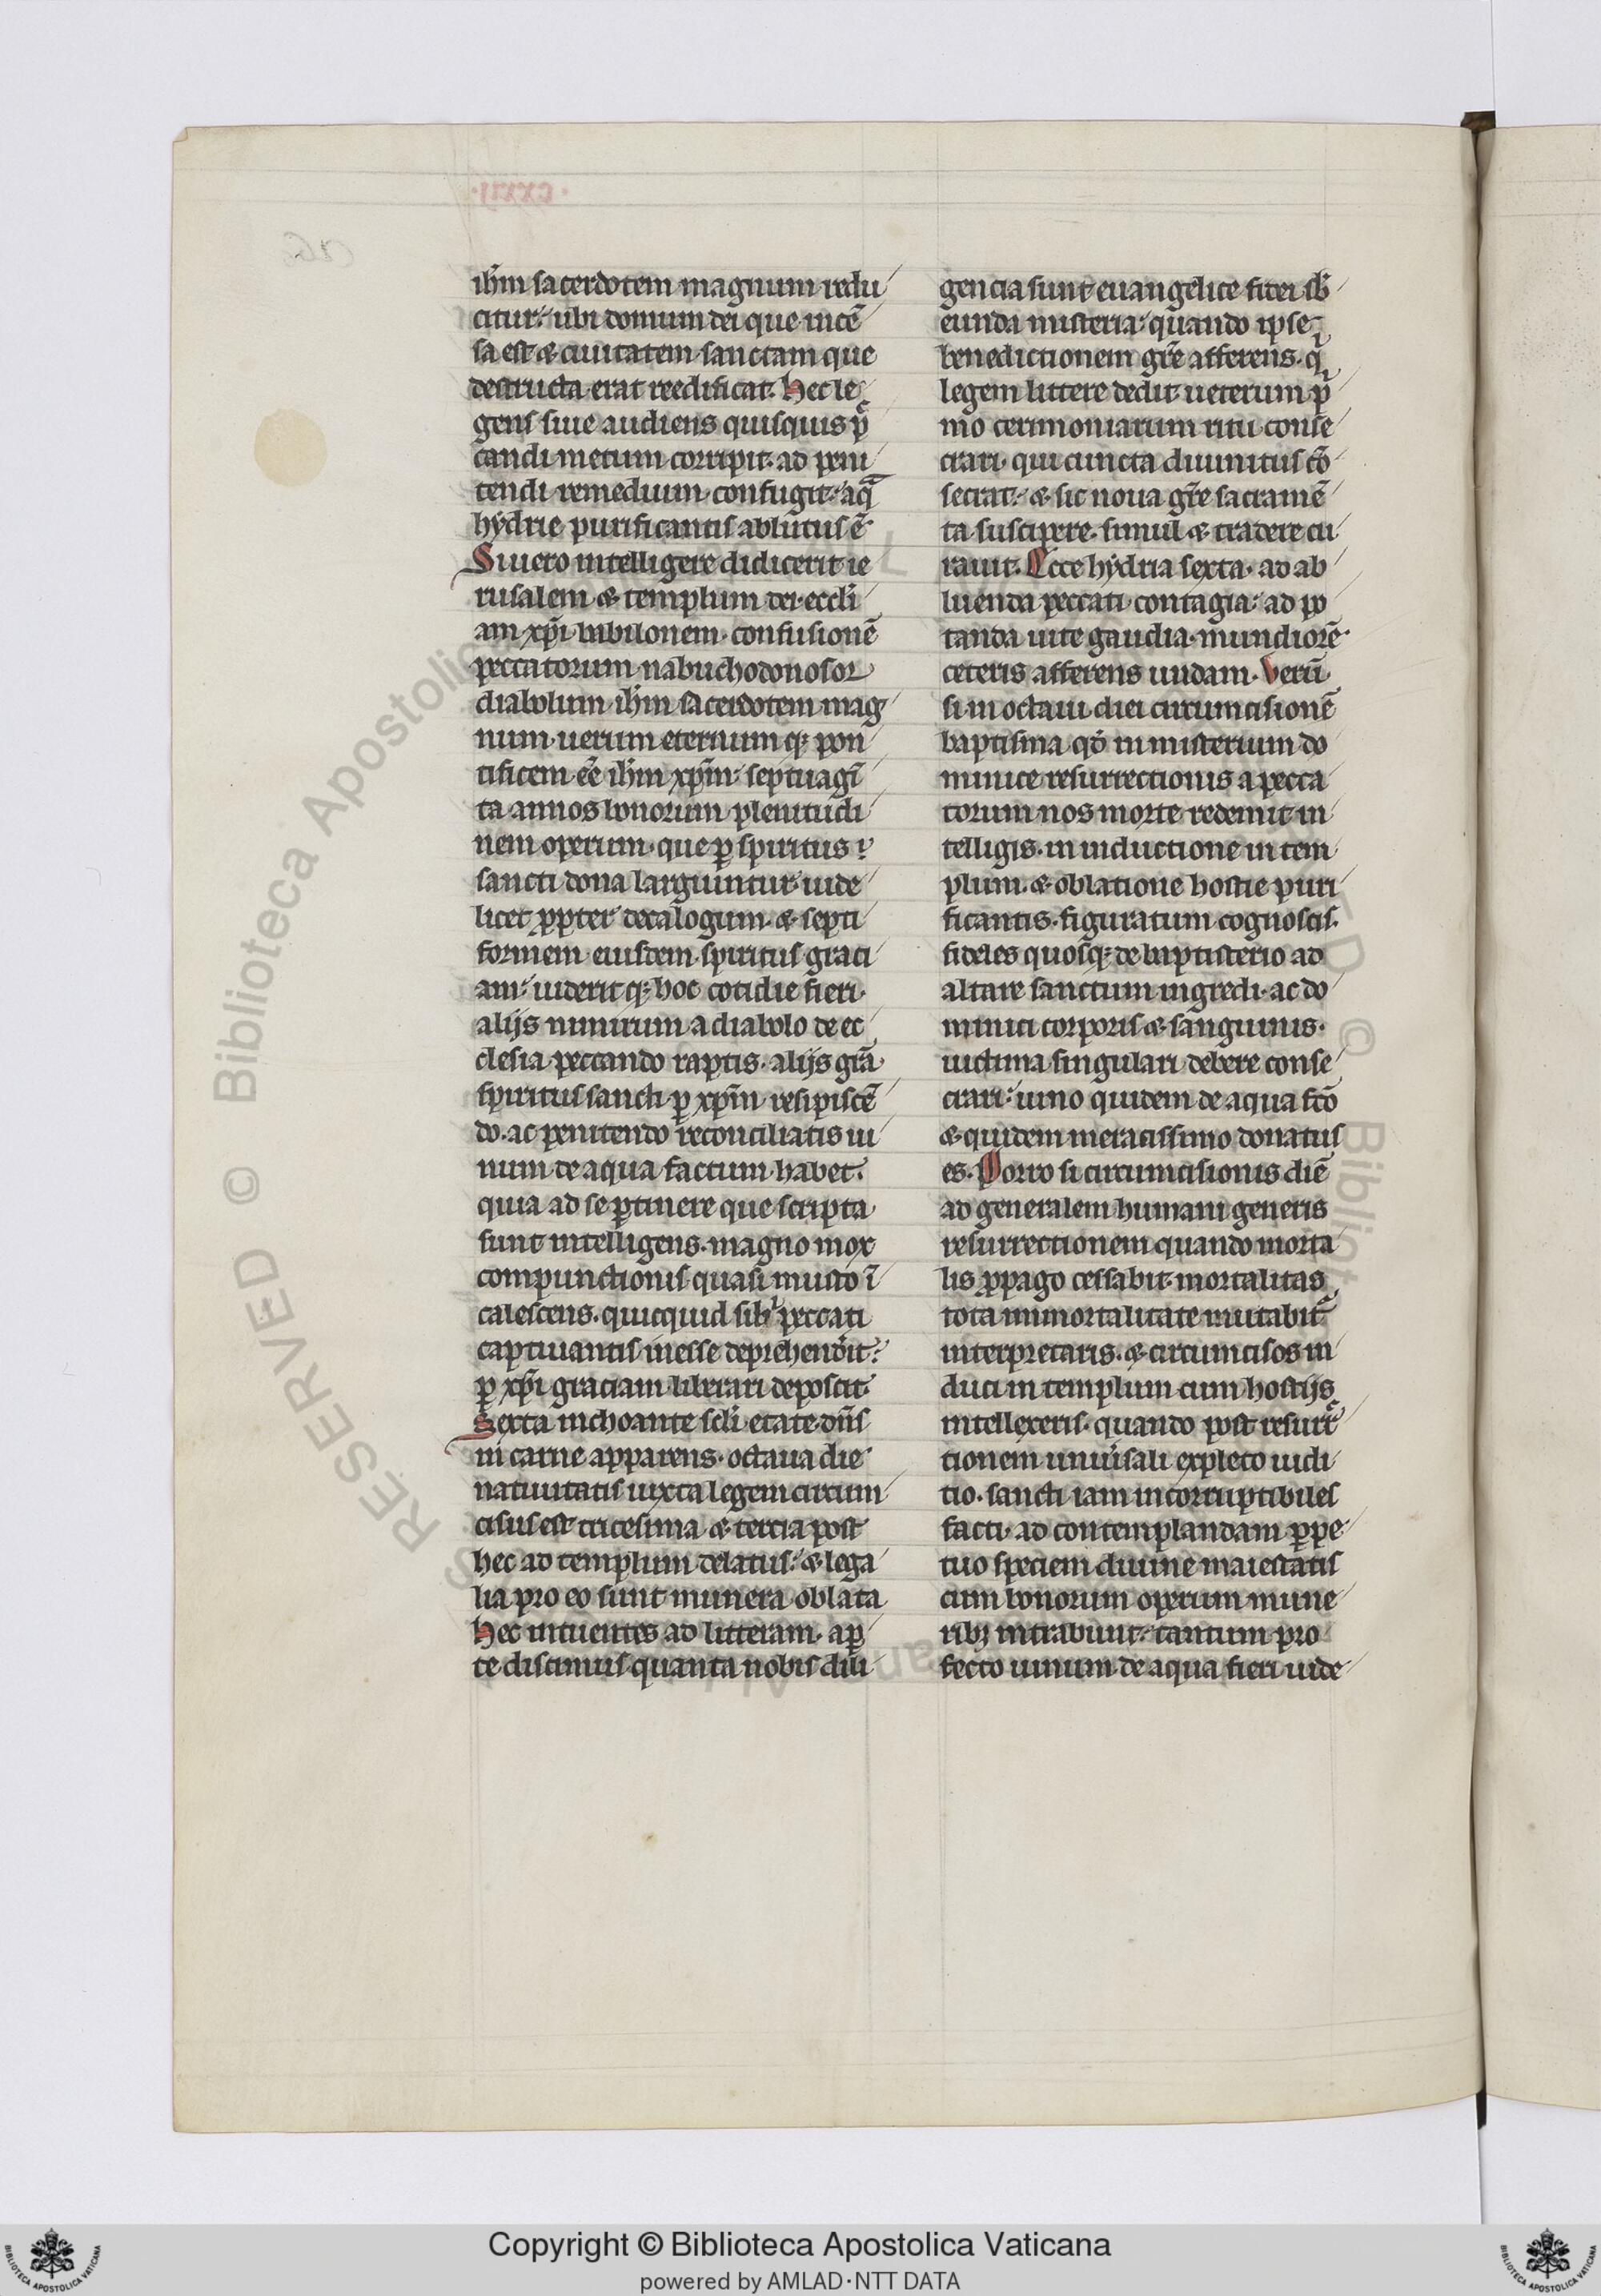 ih̄m sacerdotem magnum redu
citur. ubi domum dei que incē
sa est & ciuitatem sanctam que
destructa erat reedificat. Hec le
gens siue audiens quisquis p̄
candi metum corripit. ad peni
tendi remedium confugit. aq̄
hydrie purificantis ablutus ē.
Si uero intelligere didicerit ie
rusalem & templum dei. eccl̄i
am xp̄i babilonem. confusionē
peccatorum nabuchodonosor
diabolum. ih̄m sacerdotem mag
num. uerum eternum q; pon
tificem. eē ih̄m xp̄m. septuagī
ta annos bonorum plenitudi
nem operum. que ꝑ spiritus
sancti dona larguntur. uide
licet ꝓpter decalogum. & septi
formem eiusdem spiritus graci
am. uiderit q; hoc cotidie fieri.
alijs nimirum a diabolo de ec
clesia peccando raptis. alijs gr̄a
spiritus sancti ꝑ xp̄m resipiscē
do. ac penitendo reconciliatis ui
num de aqua factum habet.
quia ad se ꝑtinere que scripta
sunt intelligens. magno mox
compunctionis quasi musto ī
calescens. quicquid sibi peccati
captiuantis inesse deprehend'it.
ꝑ xp̄i graciam liberari deposcit.
Sexta inchoante scl̄i etate dn̄s
in carne apparens. octaua die
natiuitatis iuxta legem circum
cisus est tricesima & tercia post
hec ad templum delatus. & lega
lia pro eo sunt munera oblata
Hec intuentes ad litteram. aꝑ
te discimus quanta nobis dili
gencia sunt euangelice fidei sb̄
eunda misteria. quando ipse
benedictionem gr̄e afferens. q
legem littere dedit ueterum p
mo cerimoniarum ritu conse
crari. qui cuncta diuinitus cō
secrat. & sic noua gr̄e sacramē
ta suscipere. simul & tradere cu
rauit. Ecce hydria sexta. ad ab
luenda peccati contagia. ad po
tanda uite gaudia. mundiorē
ceteris afferens undam. Verū
si in octaui diei circumcisionē
baptisma. qd' in misterium do
minice resurrectionis a pecca
torum nos morte redemit in
telligis. in inductione in tem
plum. & oblatione hostie puri
ficantis. figuratum cognoscis.
fideles quosq; de baptisterio ad
altare sanctum ingredi. ac do
minici corporis & sanguinis.
uictima singulari debere conse
crari. uino quidem de aqua fc̄o
& quidem meracissimo donatus
es. Porro si circumcisionis diē
ad generalem humani generis
resurrectionem quando morta
lis ꝓpago cessabit. mortalitas
tota immortalitate mutabit
interpretaris. & circumcisos in
duci in templum cum hostijs
intellexeris. quando post resurr
tionem uniu'sali expleto iudi
tio. sancti iam incorruptibiles
facti. ad contemplandam ꝑpe
tuo speciem diuine maiestatis
cum bonorum operum mune
rib; intrabunt. tantum pro
fecto uinum de aqua fieri uide
RESERVED © Biblioteca Apostolica
© Bibliot
Copyright © Biblioteca Apostolica Vaticana
powered by AMLAD·NTT DATA